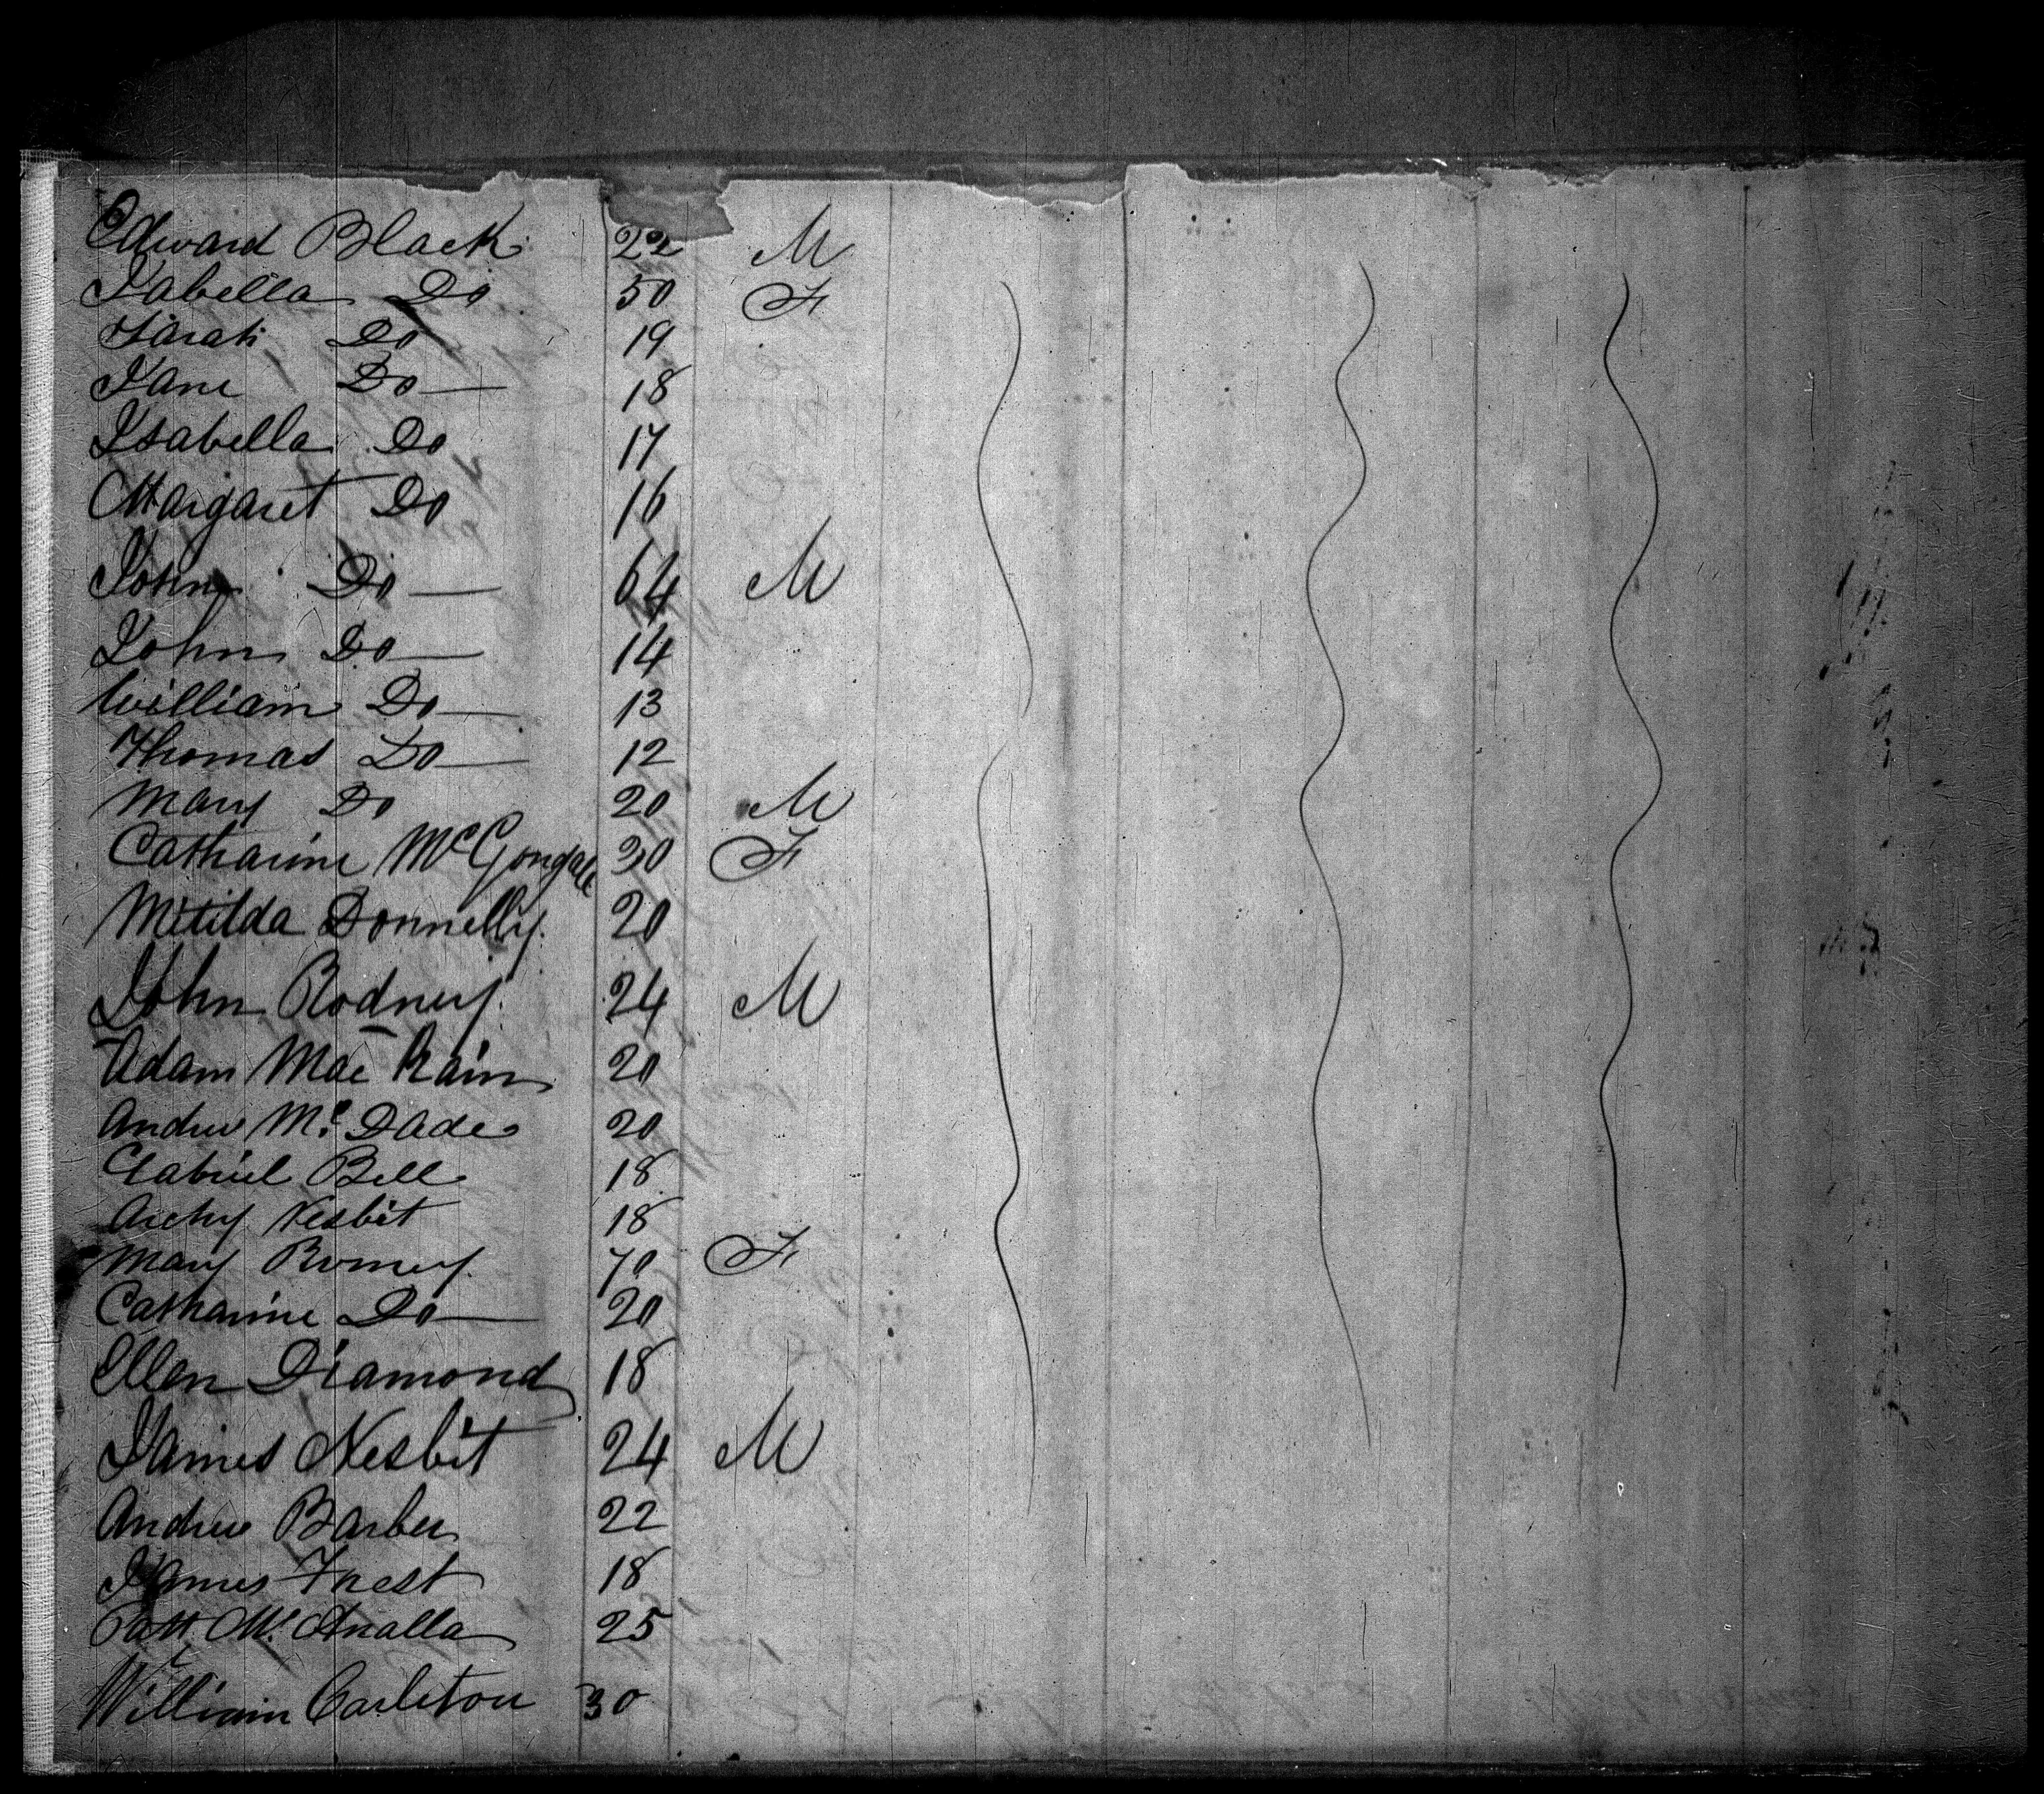 Edward Black 22 M
Isabella Do 50 F
Sarah Do 19
Jane Do — 18
Isabella Do 17
Margaret Do 16
John Do — 64 M
John Do — 14
William Do — 13
Thomas Do — 12
Mary Do 20 M
Catharine McGongale 30 F
Mitilda Donnelly 20
John Rodney 24 M
Adam Mac Kain 20
Andrew Mc Dade 20
Gabriel Bell 18
Archy Nesbit 18
Mary 70 F
Catharine Do — 20
Ellen Diamond 18
James Nesbit 24 M
Andrew Barber 22
James 18
Patt Mc Analla 25
William Carleton 30